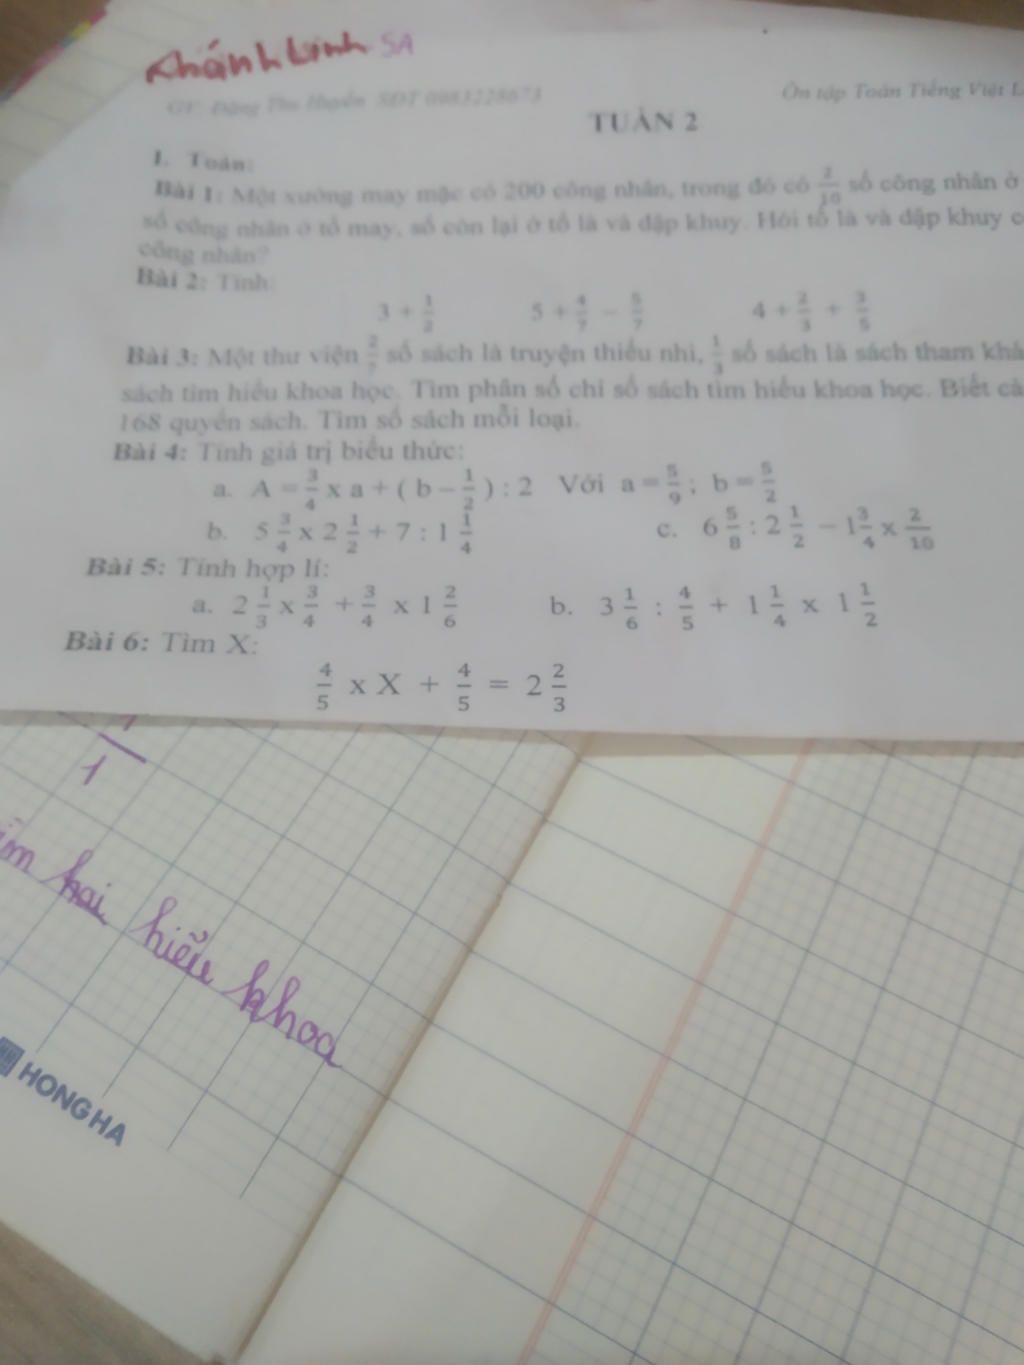 Khánh Linh 5A
GV: Đặng Thu Huyền SĐT 0983228673 Ôn tập Toán Tiếng Việt L
TUẦN 2
I. Toán:
Bài 1: Một xưởng may mặc có 200 công nhân, trong đó có 2/10 số công nhân ở
số công nhân ở tổ may, số còn lại ở tổ là và dập khuy. Hỏi tổ là và dập khuy c
công nhân?
Bài 2: Tính:
3 + 1/2 5 + 4/7 − 5/7 4 + 2/3 + 3/5
Bài 3: Một thư viện 2/7 số sách là truyện thiếu nhi, 1/3 số sách là sách tham khả
sách tìm hiểu khoa học. Tìm phân số chỉ số sách tìm hiểu khoa học. Biết cả
168 quyển sách. Tìm số sách mỗi loại.
Bài 4: Tính giá trị biểu thức:
a. A = 3/4 x a + ( b − 1/2 ) : 2 Với a = 5/9 ; b = 5/2
b. 5 3/4 x 2 1/2 + 7 : 1 1/4 c. 6 5/8 : 2 1/2 − 1 3/4 x 2/10
Bài 5: Tính hợp lí:
a. 2 1/3 x 3/4 + 3/4 x 1 2/6 b. 3 1/6 : 4/5 + 1 1/4 x 1 1/2
Bài 6: Tìm X:
4/5 x X + 4/5 = 2 2/3
1
hiểu khoa
HONG HA